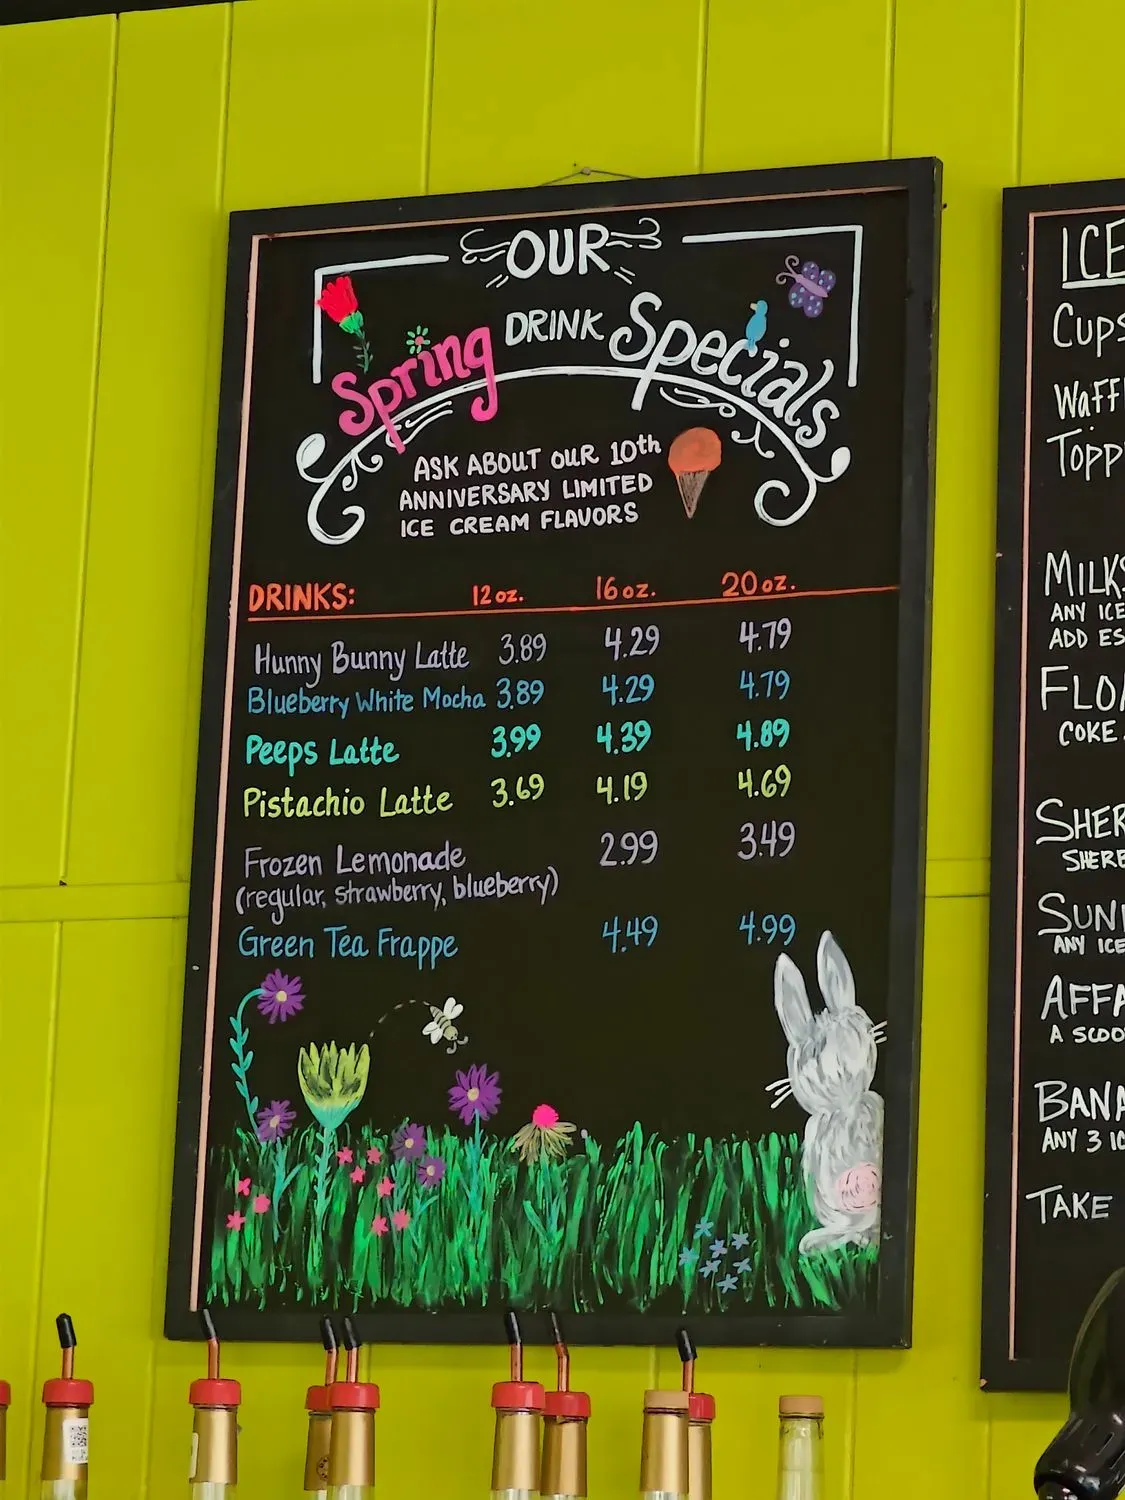 OUR
Spring DRINK Specials
ASK ABOUT OUR 10th
ANNIVERSARY LIMITED
ICE CREAM FLAVORS
DRINKS: 12 oz. 16 oz. 20 oz.
Hunny Bunny Latte 3.89 4.29 4.79
Blueberry White Mocha 3.89 4.29 4.79
Peeps Latte 3.99 4.39 4.89
Pistachio Latte 3.69 4.19 4.69
Frozen Lemonade 2.99 3.49
(regular, strawberry, blueberry)
Green Tea Frappe 4.49 4.99
ICE
Cups
Waff
Topp
MILKS
ANY ICE
ADD ES
FLOA
COKE
SHER
SHERB
SUN
ANY ICE
AFFA
A SCOO
BANA
ANY 3 IC
TAKE